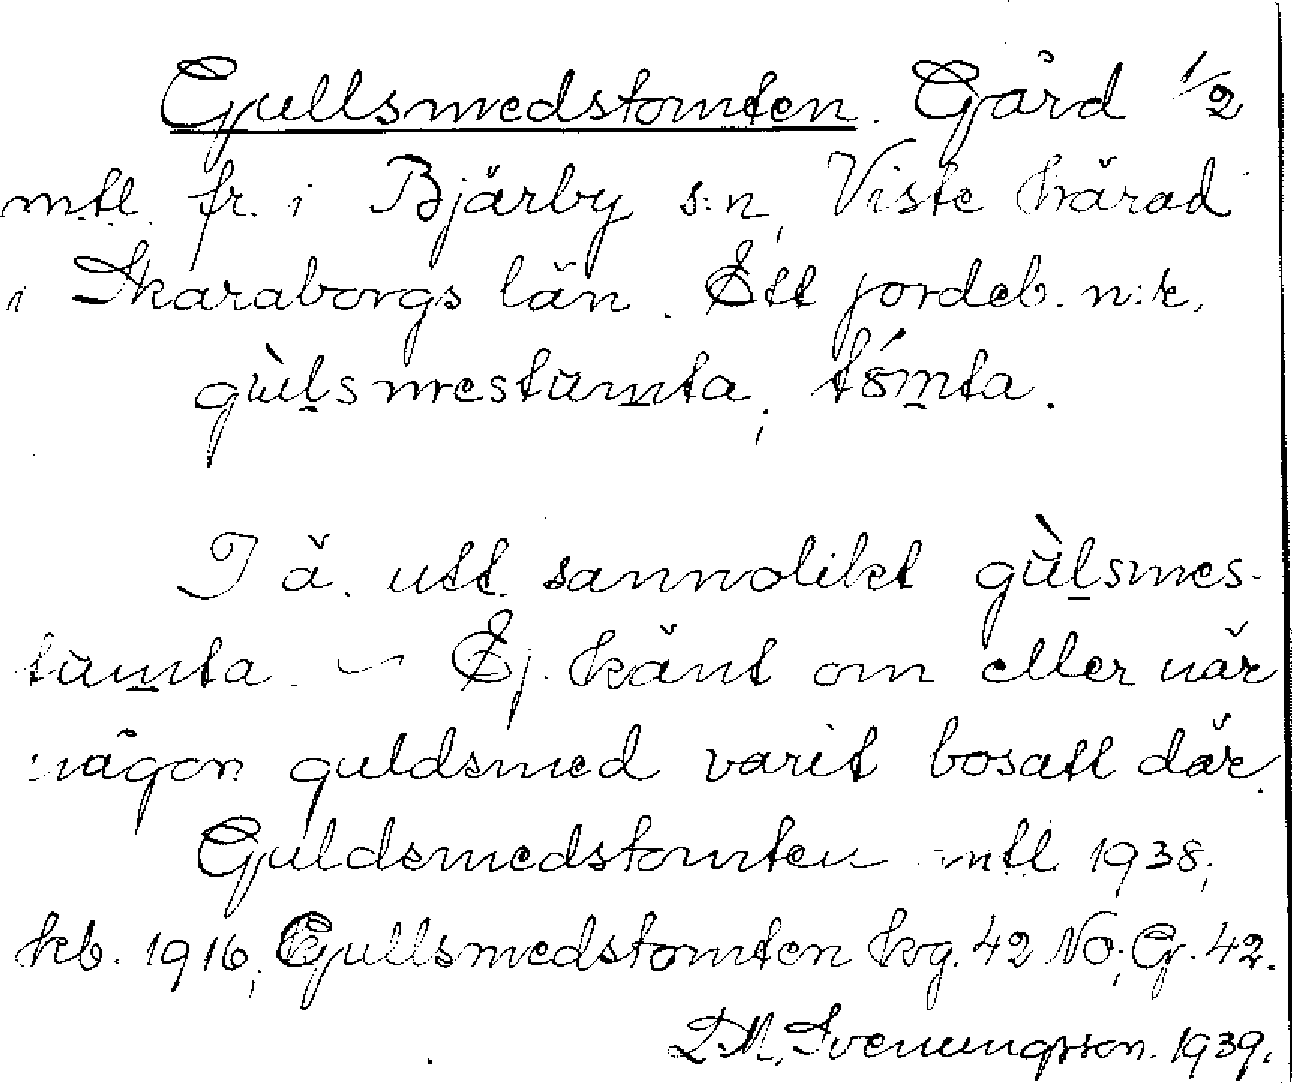 Gullsmedstomten. Gård 1/2
mtl. fr. i Bjärby s:n, Viste härad
i Skaraborgs län. Ett jordeb. n:r.
gùl̠smestum̠ta, tóm̠ta.
I ä. utt. sannolikt gùl̠smes-
tum̠ta. – Ej känt om eller när
någon guldsmed varit bosatt där.
Guldsmedstomten mtl 1938;
kb. 1916; Gullsmedstomten kg. 42 NO; G. 42.
D.M. Svenungsson. 1939.